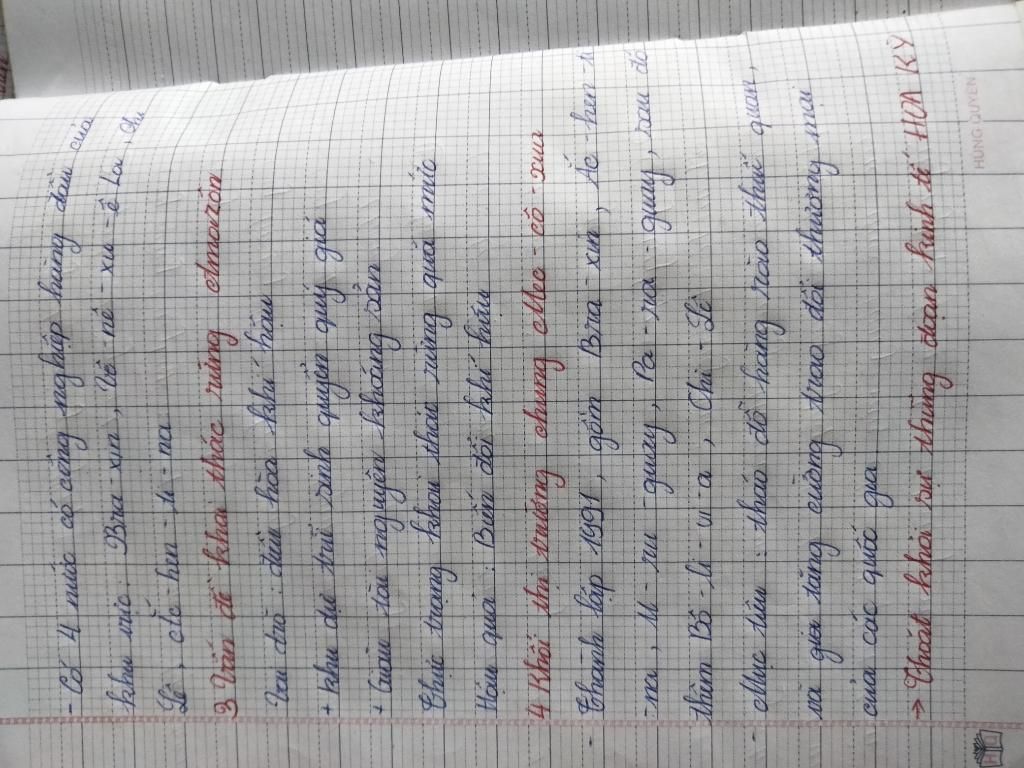 - Có 4 nước có công nghiệp hàng đầu của
khu vực: Bra-xin, Vê-nê-xu-ê-la, Chi
Lê, Ác-hen-ti-na
3 Vấn đề khai thác rừng Amazôn
Vai trò: điều hòa khí hậu
+ khu dự trữ sinh quyển quý giá
+ Giàu tài nguyên khoáng sản
Thực trạng khai thác rừng quá mức
Hậu quả: Biến đổi khí hậu
4 Khối thị trường chung Mec-cô-xua
Thành lập 1991, gồm Bra-xin, Ác-hen-ti
-na, U-ru-guay, Pa-ra-guay, sau đó
thêm Bô-li-vi-a, Chi-Lê
Mục tiêu: tháo dỡ hàng rào thuế quan,
và gia tăng cường trao đổi thương mại
của các quốc gia
→ Thoát khỏi sự thũng đoạn kinh tế HOA KỲ
HUNG QUYEN